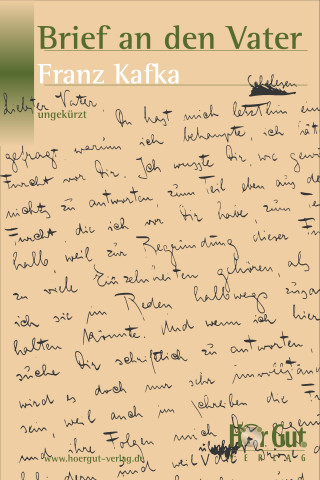 Brief an den Vater
Franz Kafka
Schelesen
Liebster Vater,
ungekürzt
Du hast mich letzthin ein
gefragt, warum ich behaupte, ich hät
Furcht vor Dir. Ich wusste Dir, wie gewö
nichts zu antworten, zum Teil eben aus de
Furcht, die ich vor Dir habe, zum
halb, weil zur Begründung dieser Fur
zu viele Einzelnheiten gehören, als
ich sie im Reden halbwegs zusam
halten könnte. Und wenn ich hier
suche Dir schriftlich zu antworten,
wird es doch nur sehr unvollstän
sein, weil auch im Schreiben die Fu
und ihre Folgen mich Dir gegen
Hör Gut!
VERLAG
www.hoergut-verlag.de
und weil